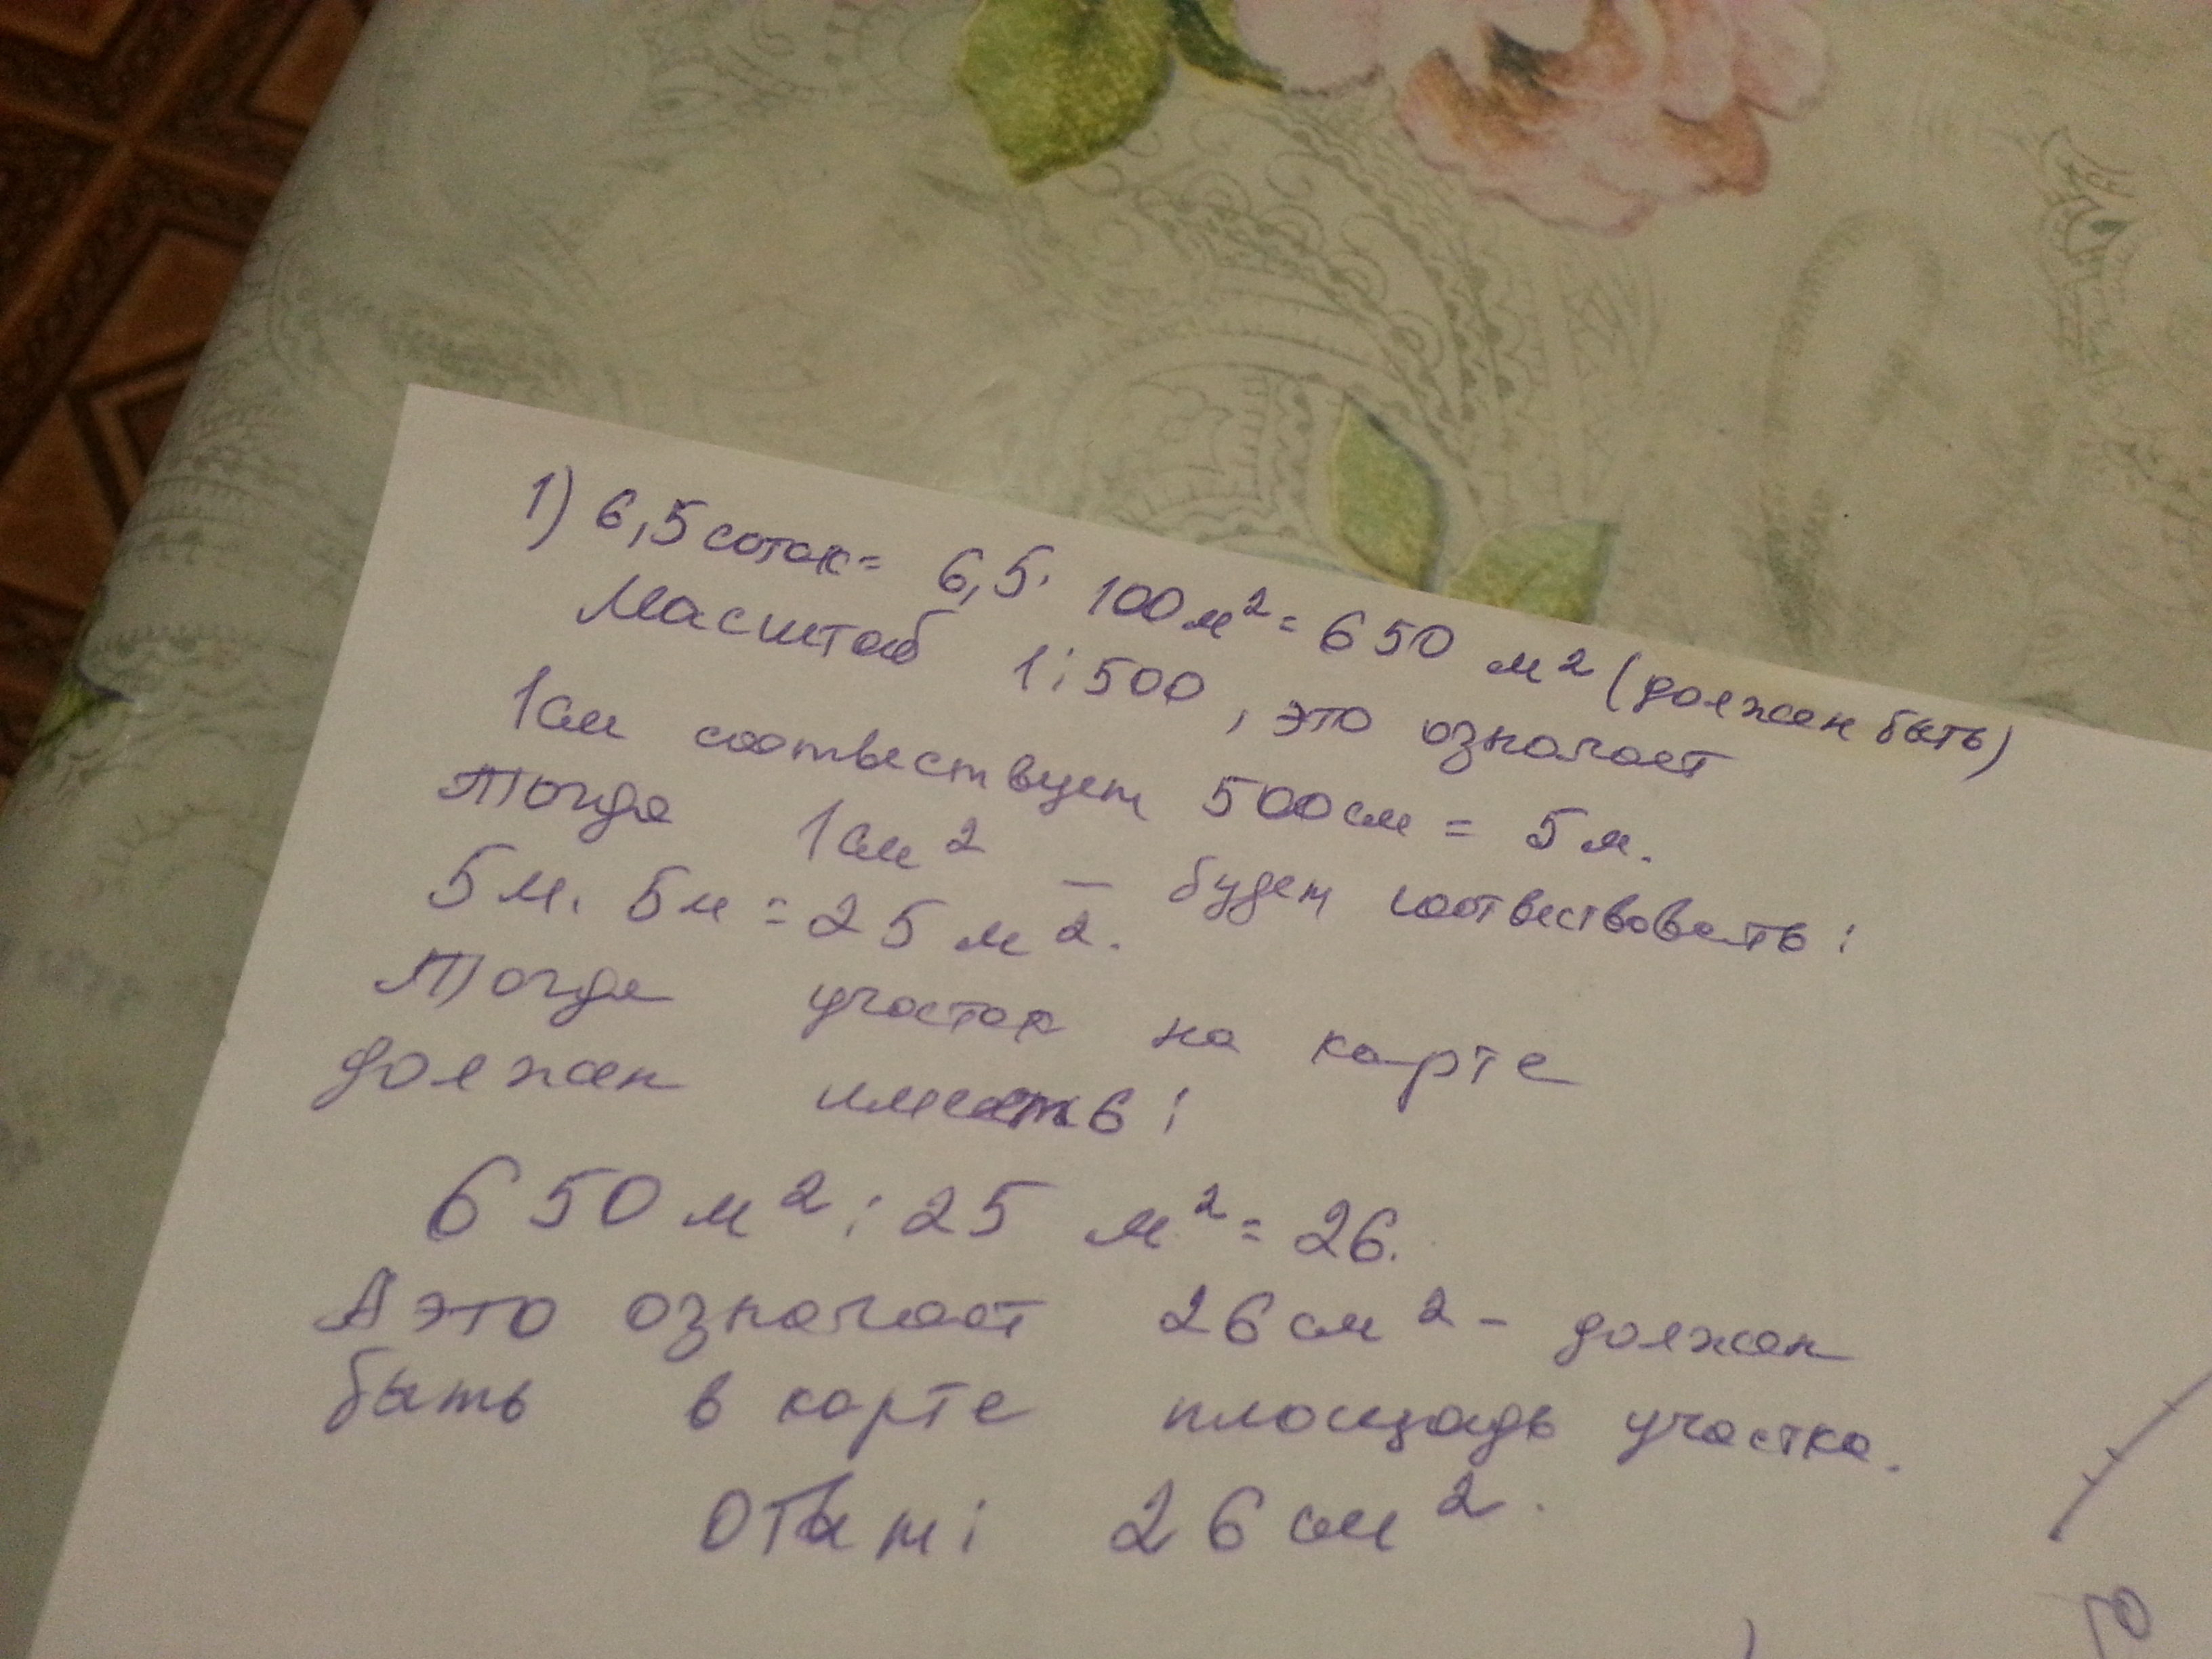 1) 6,5 соток = 6,5 · 100 м² = 650 м² (должен быть)
Масштаб 1:500, это означает
1см соотвествует 500см = 5м.
Тогда 1см² – будет соотвествовать:
5м · 5м = 25 м².
Тогда участок на карте
должен иметь:
650 м² : 25 м² = 26.
А это означает 26 см² – должен
быть в карте площадь участка.
Ответ: 26 см².